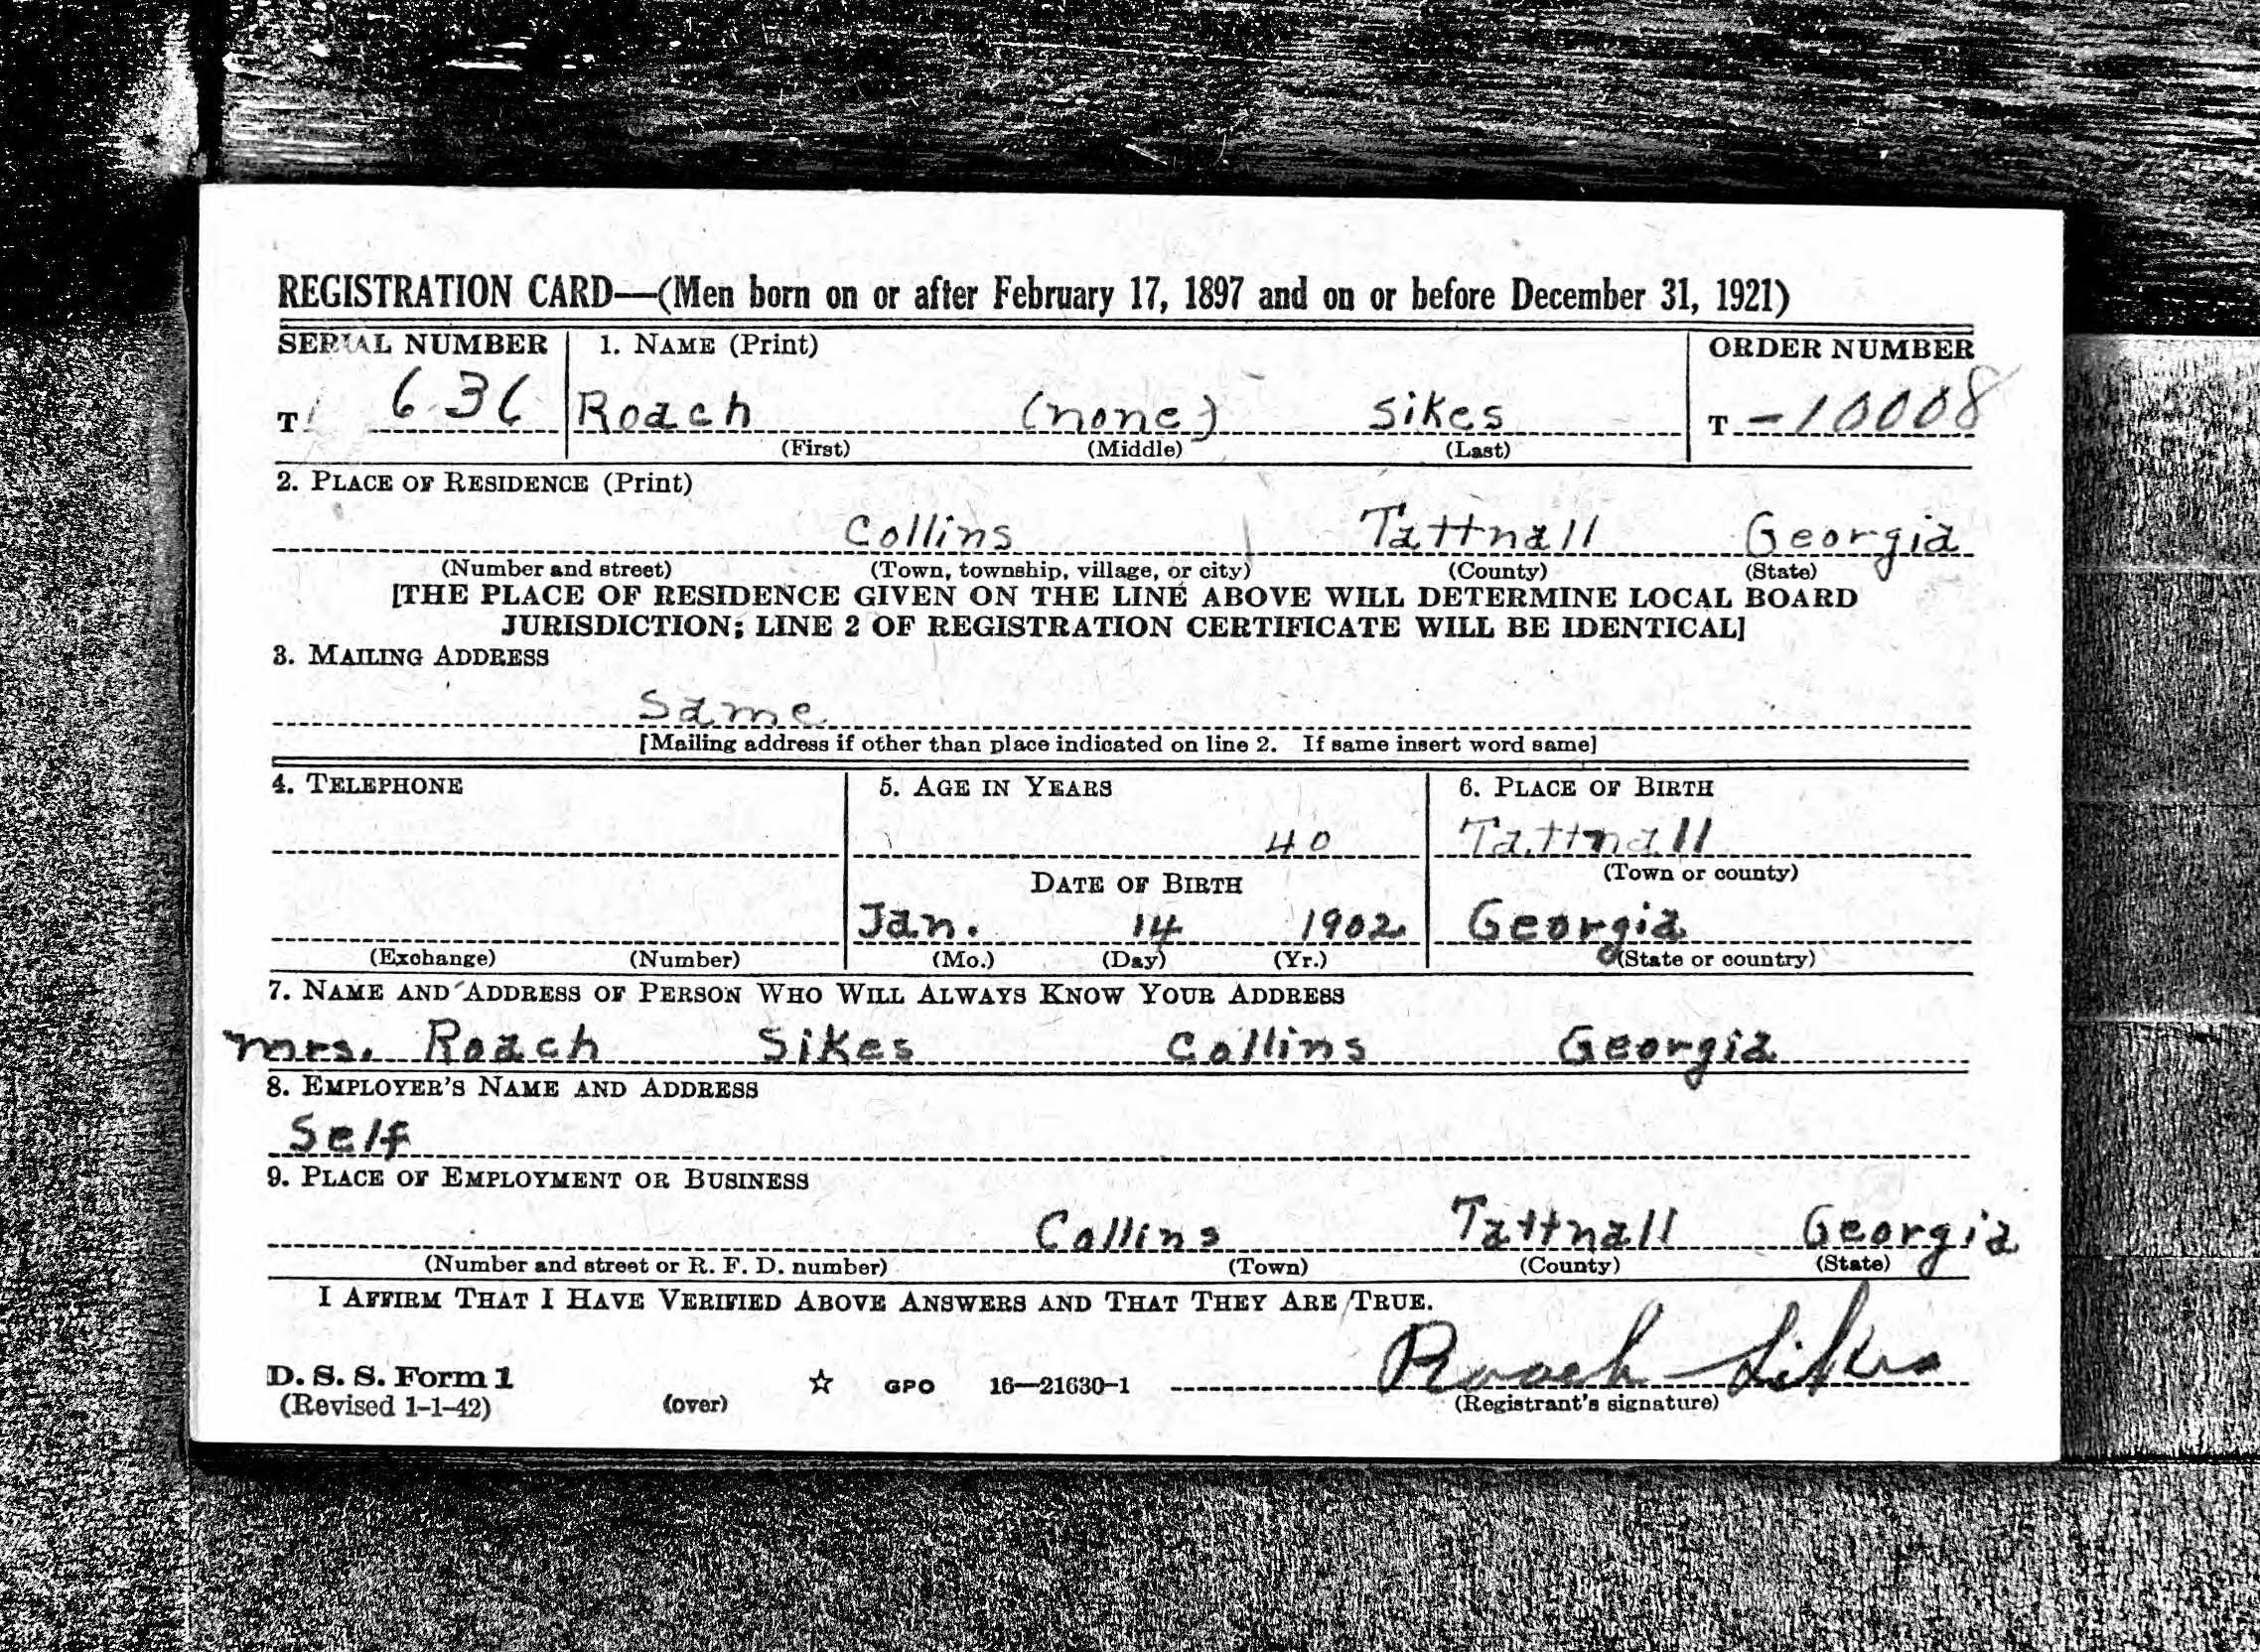 REGISTRATION CARD—(Men born on or after February 17, 1897 and on or before December 31, 1921)
SERIAL NUMBER 1. NAME (Print) ORDER NUMBER
T 636 Roach (none) Sikes T -10008
(First) (Middle) (Last)
2. PLACE OF RESIDENCE (Print)
Collins Tattnall Georgia
(Number and street) (Town, township, village, or city) (County) (State)
[THE PLACE OF RESIDENCE GIVEN ON THE LINE ABOVE WILL DETERMINE LOCAL BOARD
JURISDICTION; LINE 2 OF REGISTRATION CERTIFICATE WILL BE IDENTICAL]
3. MAILING ADDRESS
Same
[Mailing address if other than place indicated on line 2. If same insert word same]
4. TELEPHONE 5. AGE IN YEARS 6. PLACE OF BIRTH
40 Tattnall
DATE OF BIRTH (Town or county)
Jan. 14 1902 Georgia
(Exchange) (Number) (Mo.) (Day) (Yr.) (State or country)
7. NAME AND ADDRESS OF PERSON WHO WILL ALWAYS KNOW YOUR ADDRESS
Mrs. Roach Sikes Collins Georgia
8. EMPLOYER'S NAME AND ADDRESS
Self
9. PLACE OF EMPLOYMENT OR BUSINESS
Collins Tattnall Georgia
(Number and street or R. F. D. number) (Town) (County) (State)
I AFFIRM THAT I HAVE VERIFIED ABOVE ANSWERS AND THAT THEY ARE TRUE.
Roach Sikes
D. S. S. Form 1 ☆ GPO 16—21630-1
(Revised 1-1-42) (over) (Registrant's signature)